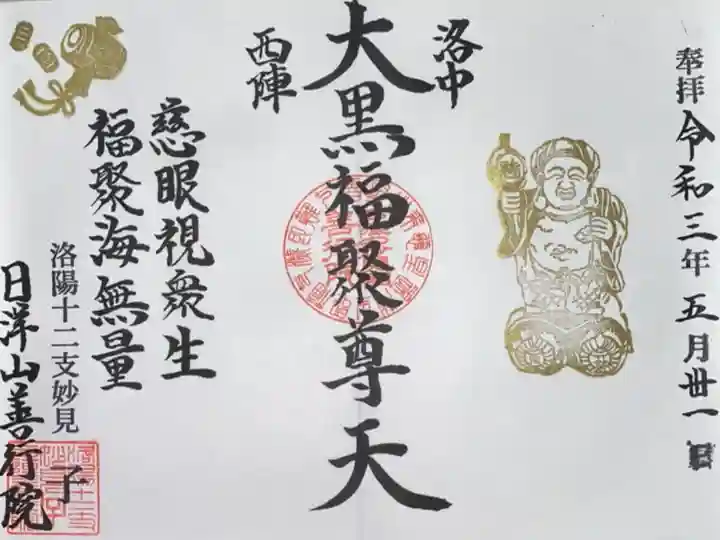 奉拝 令和三年五月卅一日
洛中
大黒福聚尊天
西陣
慈眼視衆生
福聚海無量
洛陽十二支妙見
子
日洋山善行院